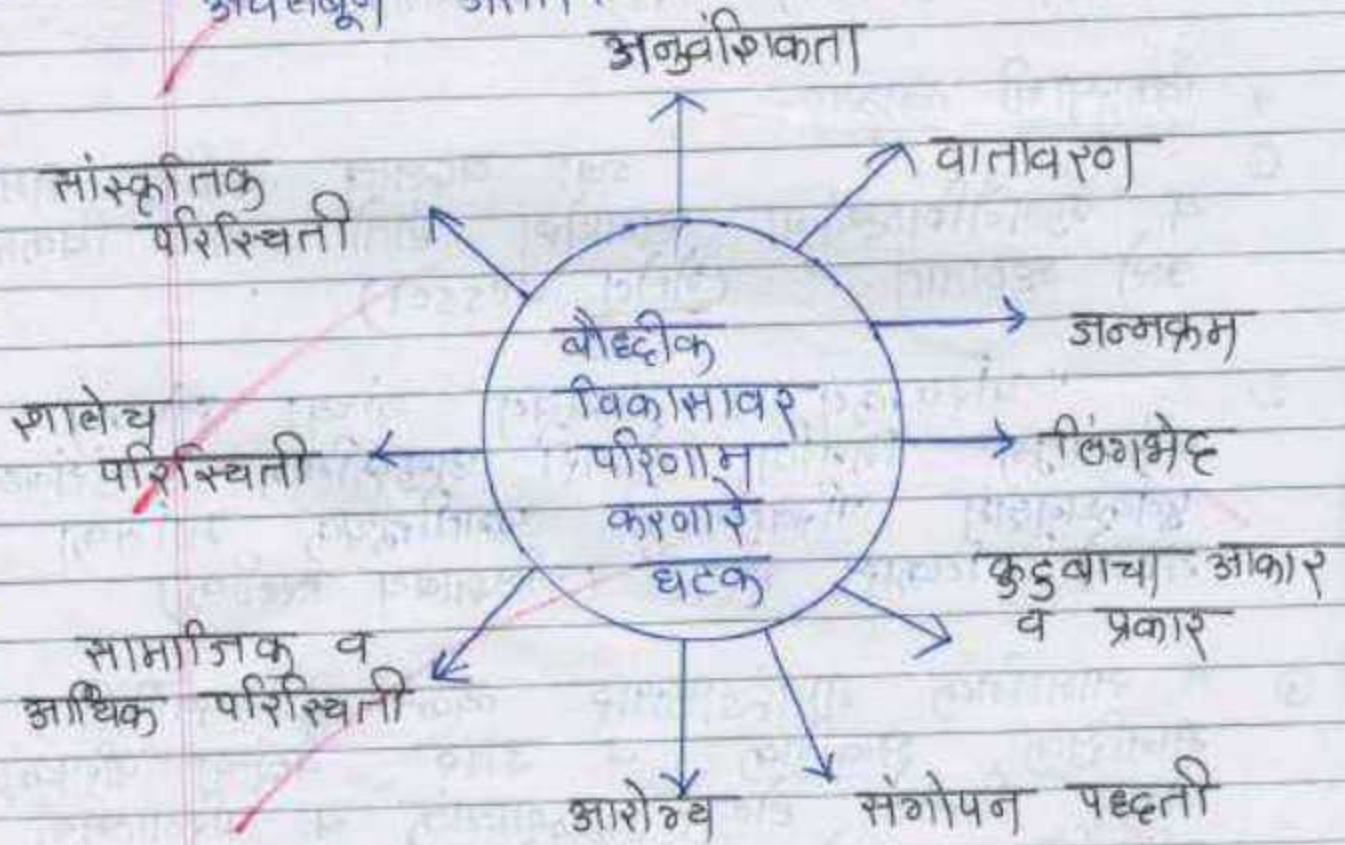 अवलंबून
अनुवंशिकता
वातावरण
जन्मक्रम
लिंगभेद
कुटुंबाचा आकार
व प्रकार
संगोपन पध्दती
आरोग्य
सामाजिक व
आर्थिक परिस्थिती
शालेय
परिस्थिती
सांस्कृतिक
परिस्थिती
बौध्दीक
विकासावर
परिणाम
करणारे
घटक